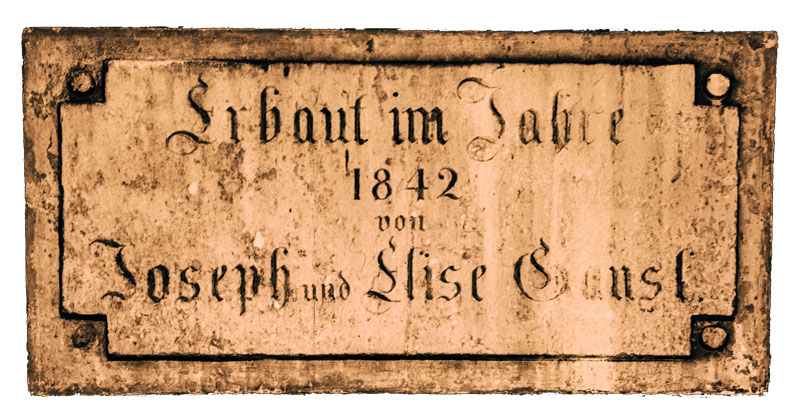 Erbaut im Jahre
1842
von
Joseph und Elise